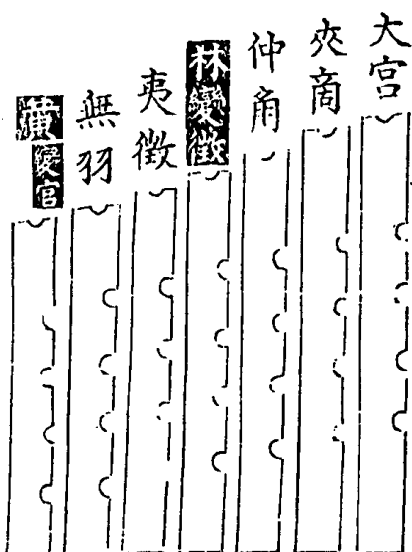 大宫
夾商
仲角
林變徵
夷徵
無羽
黃變宫